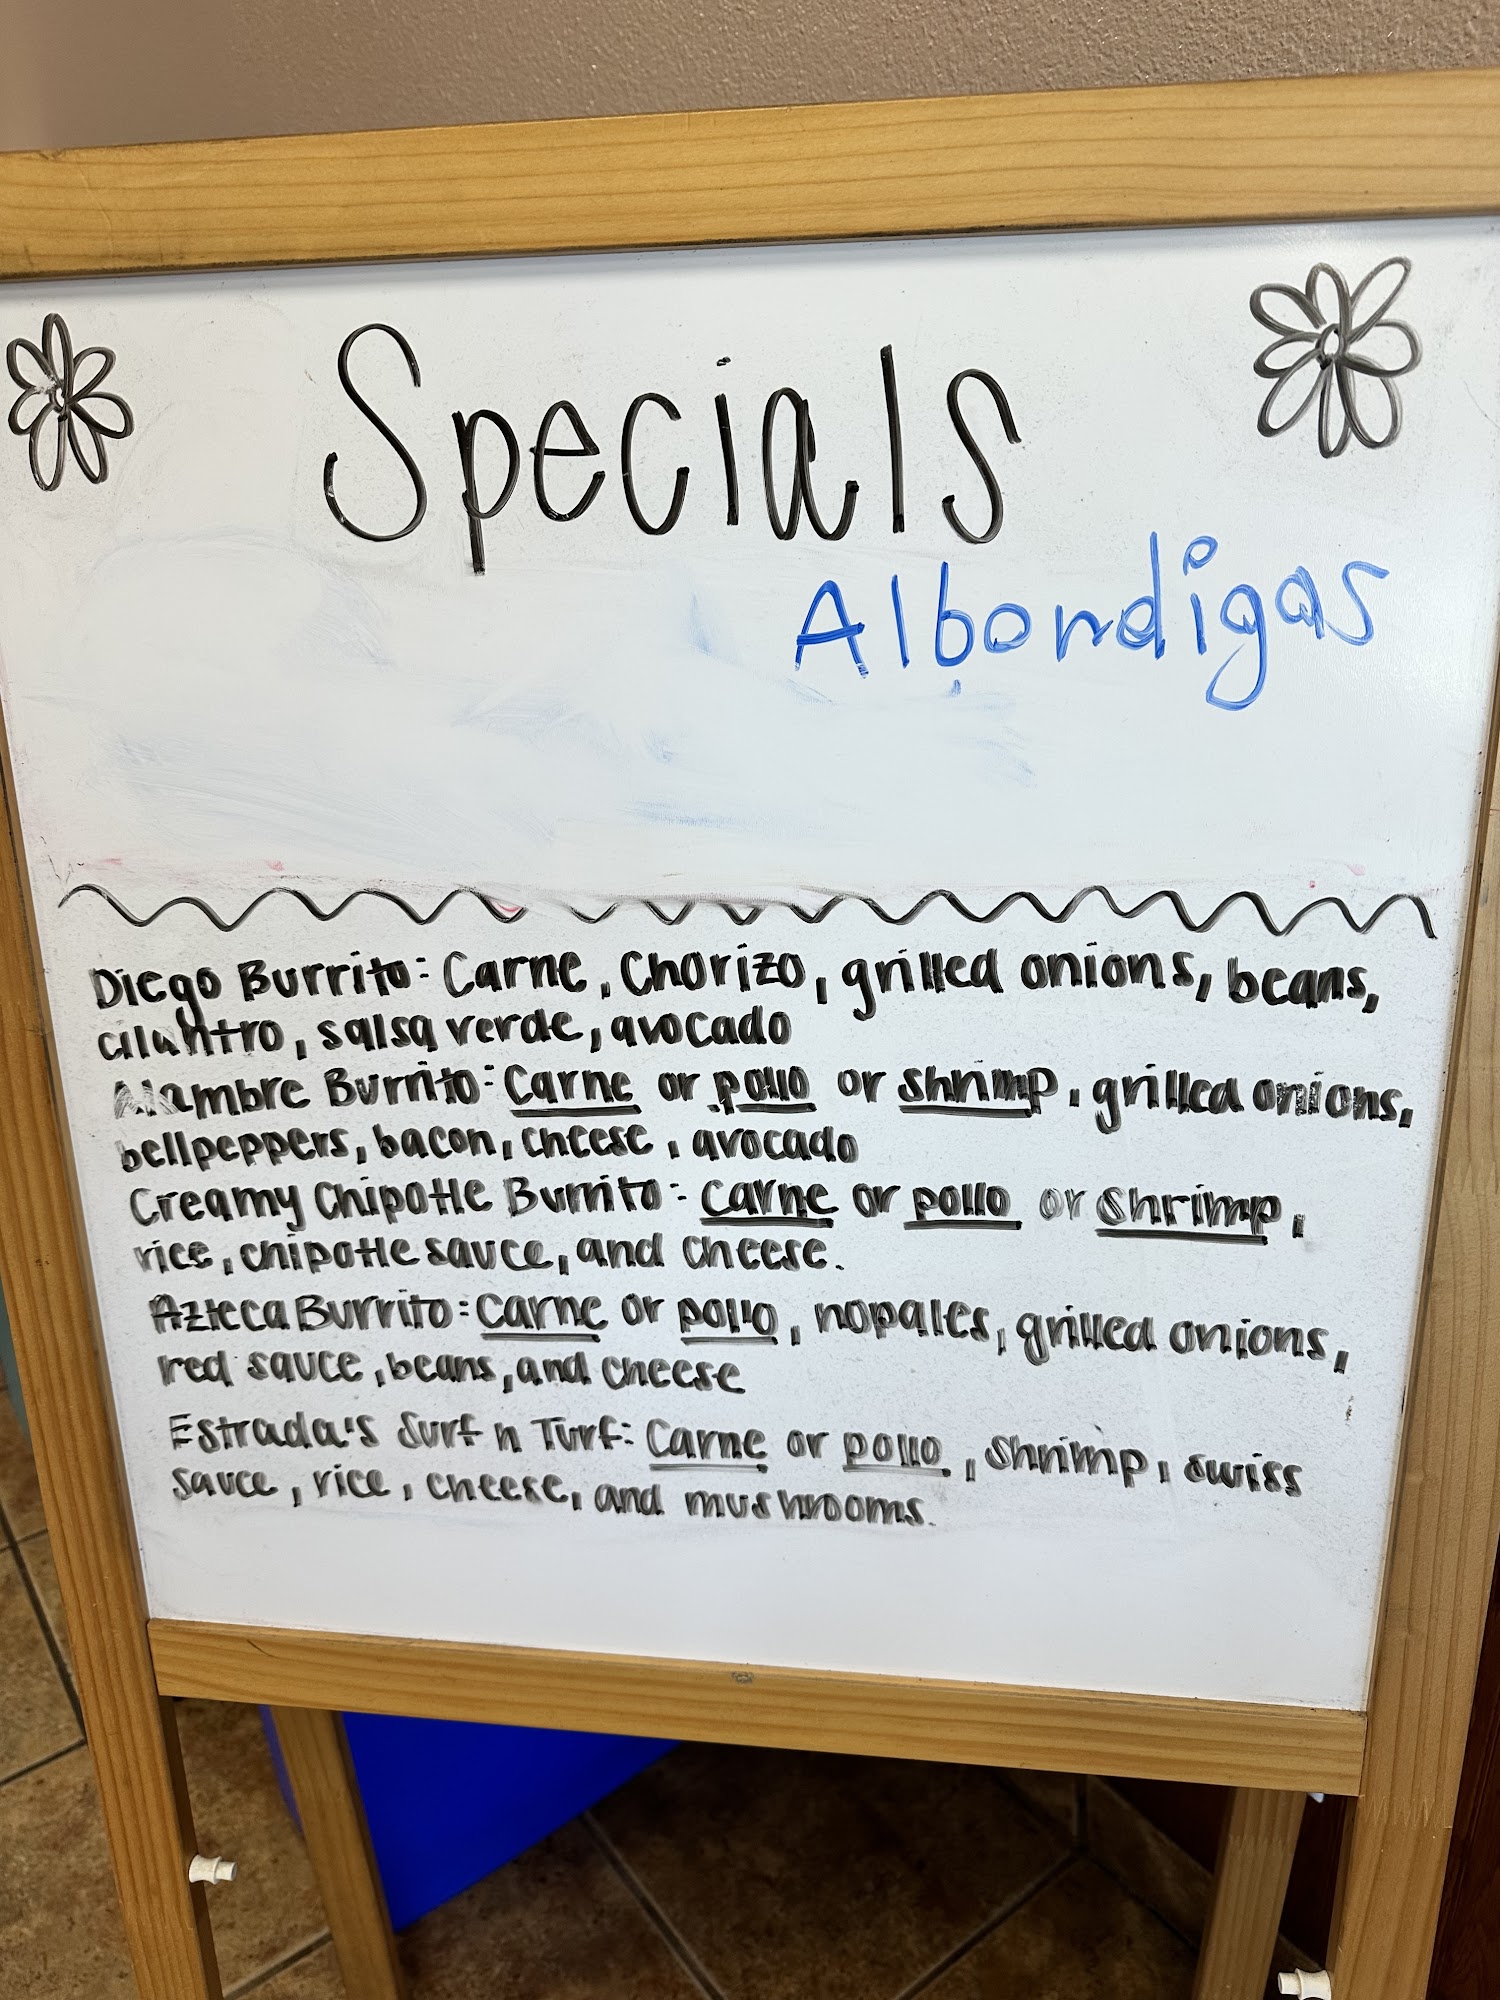 Specials
Albondigas
Diego Burrito: Carne, Chorizo, grilled onions, beans,
cilantro, salsa verde, avocado
Alambre Burrito: Carne or pollo or shrimp, grilled onions,
bellpeppers, bacon, cheese, avocado
Creamy Chipotle Burrito: carne or pollo or shrimp,
rice, chipotle sauce, and cheese.
Azteca Burrito: Carne or pollo, nopales, grilled onions,
red sauce, beans, and cheese
Estrada's Surf n Turf: Carne or pollo, shrimp, swiss
sauce, rice, cheese, and mushrooms.